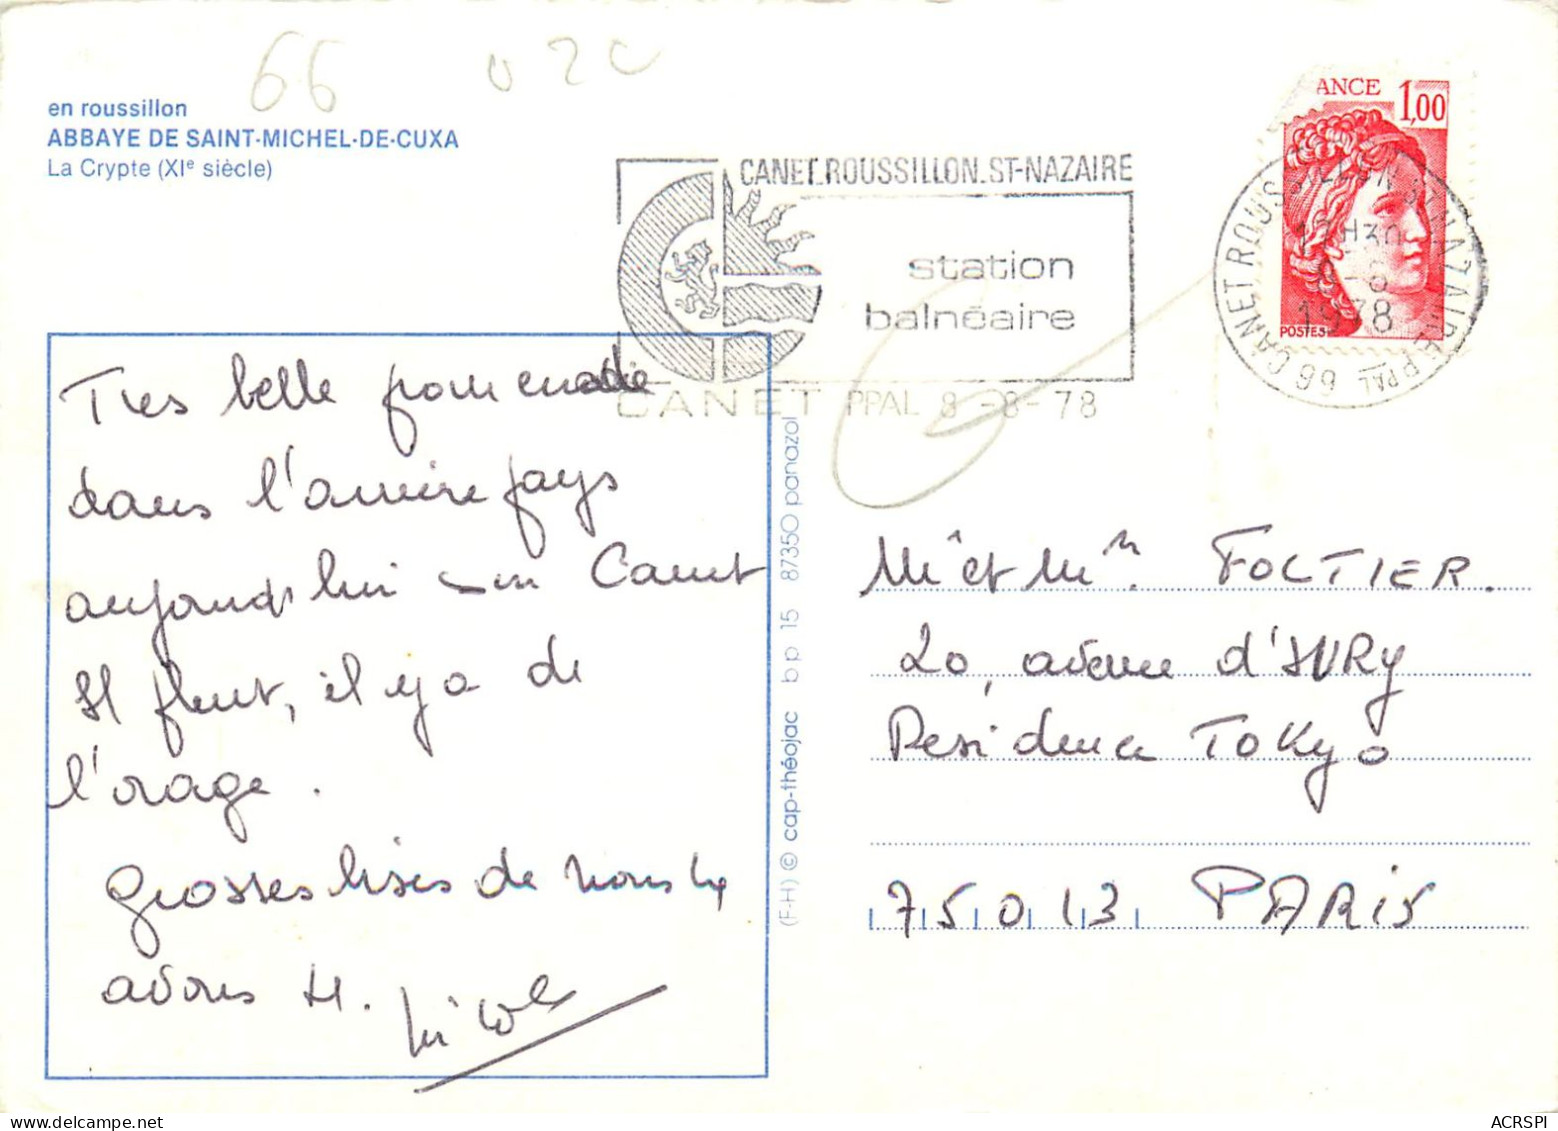 66 02C
en roussillon
ABBAYE DE SAINT-MICHEL-DE-CUXA
La Crypte (XIe siècle)
ANCE 1,00
POSTES
CANET ROUSSILLON ST-NAZAIRE PPAL 66
12H30
8-8
1978
CANET.ROUSSILLON.ST-NAZAIRE
station
balnéaire
CANET PPAL 8 -8- 78
Tres belle promenade
dans l'arrière pays
aujourd'hui sur Canet
Il pleut, il y a de
l'orage.
Grosses bises de nous 4
(F-H) © cap-théojac bp 15 87350 panazol
Mr et Mme. FOLTIER.
20, avenue d'IVRy
Residence Tokyo
75013 PARiS
Nicole
ACRSPI